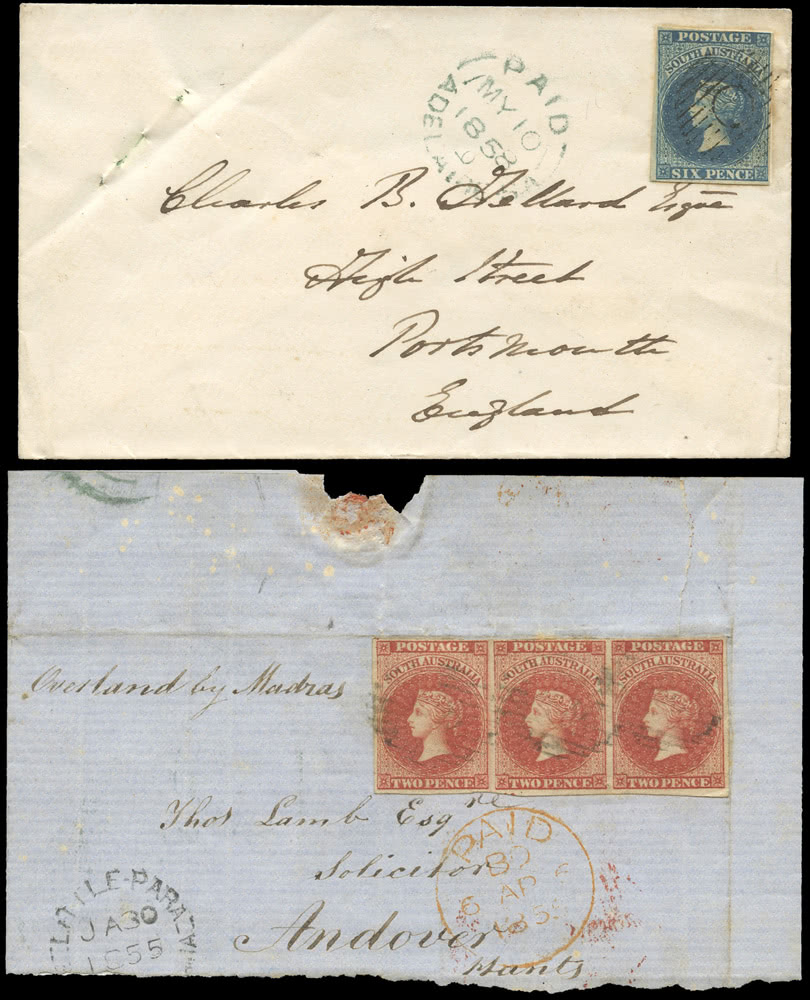 POSTAGE
SOUTH AUSTRALIA
SIX PENCE
PAID
MY 10
1858
ADELAIDE
Charles B. Hellard Esqre
High Street
Portsmouth
England
Overland by Madras
POSTAGE POSTAGE POSTAGE
SOUTH AUSTRALIA SOUTH AUSTRALIA SOUTH AUSTRALIA
TWO PENCE TWO PENCE TWO PENCE
Thos Lamb Esqre
Solicitor
Andover
Hants
PAID
30
AP
JA 30
1855